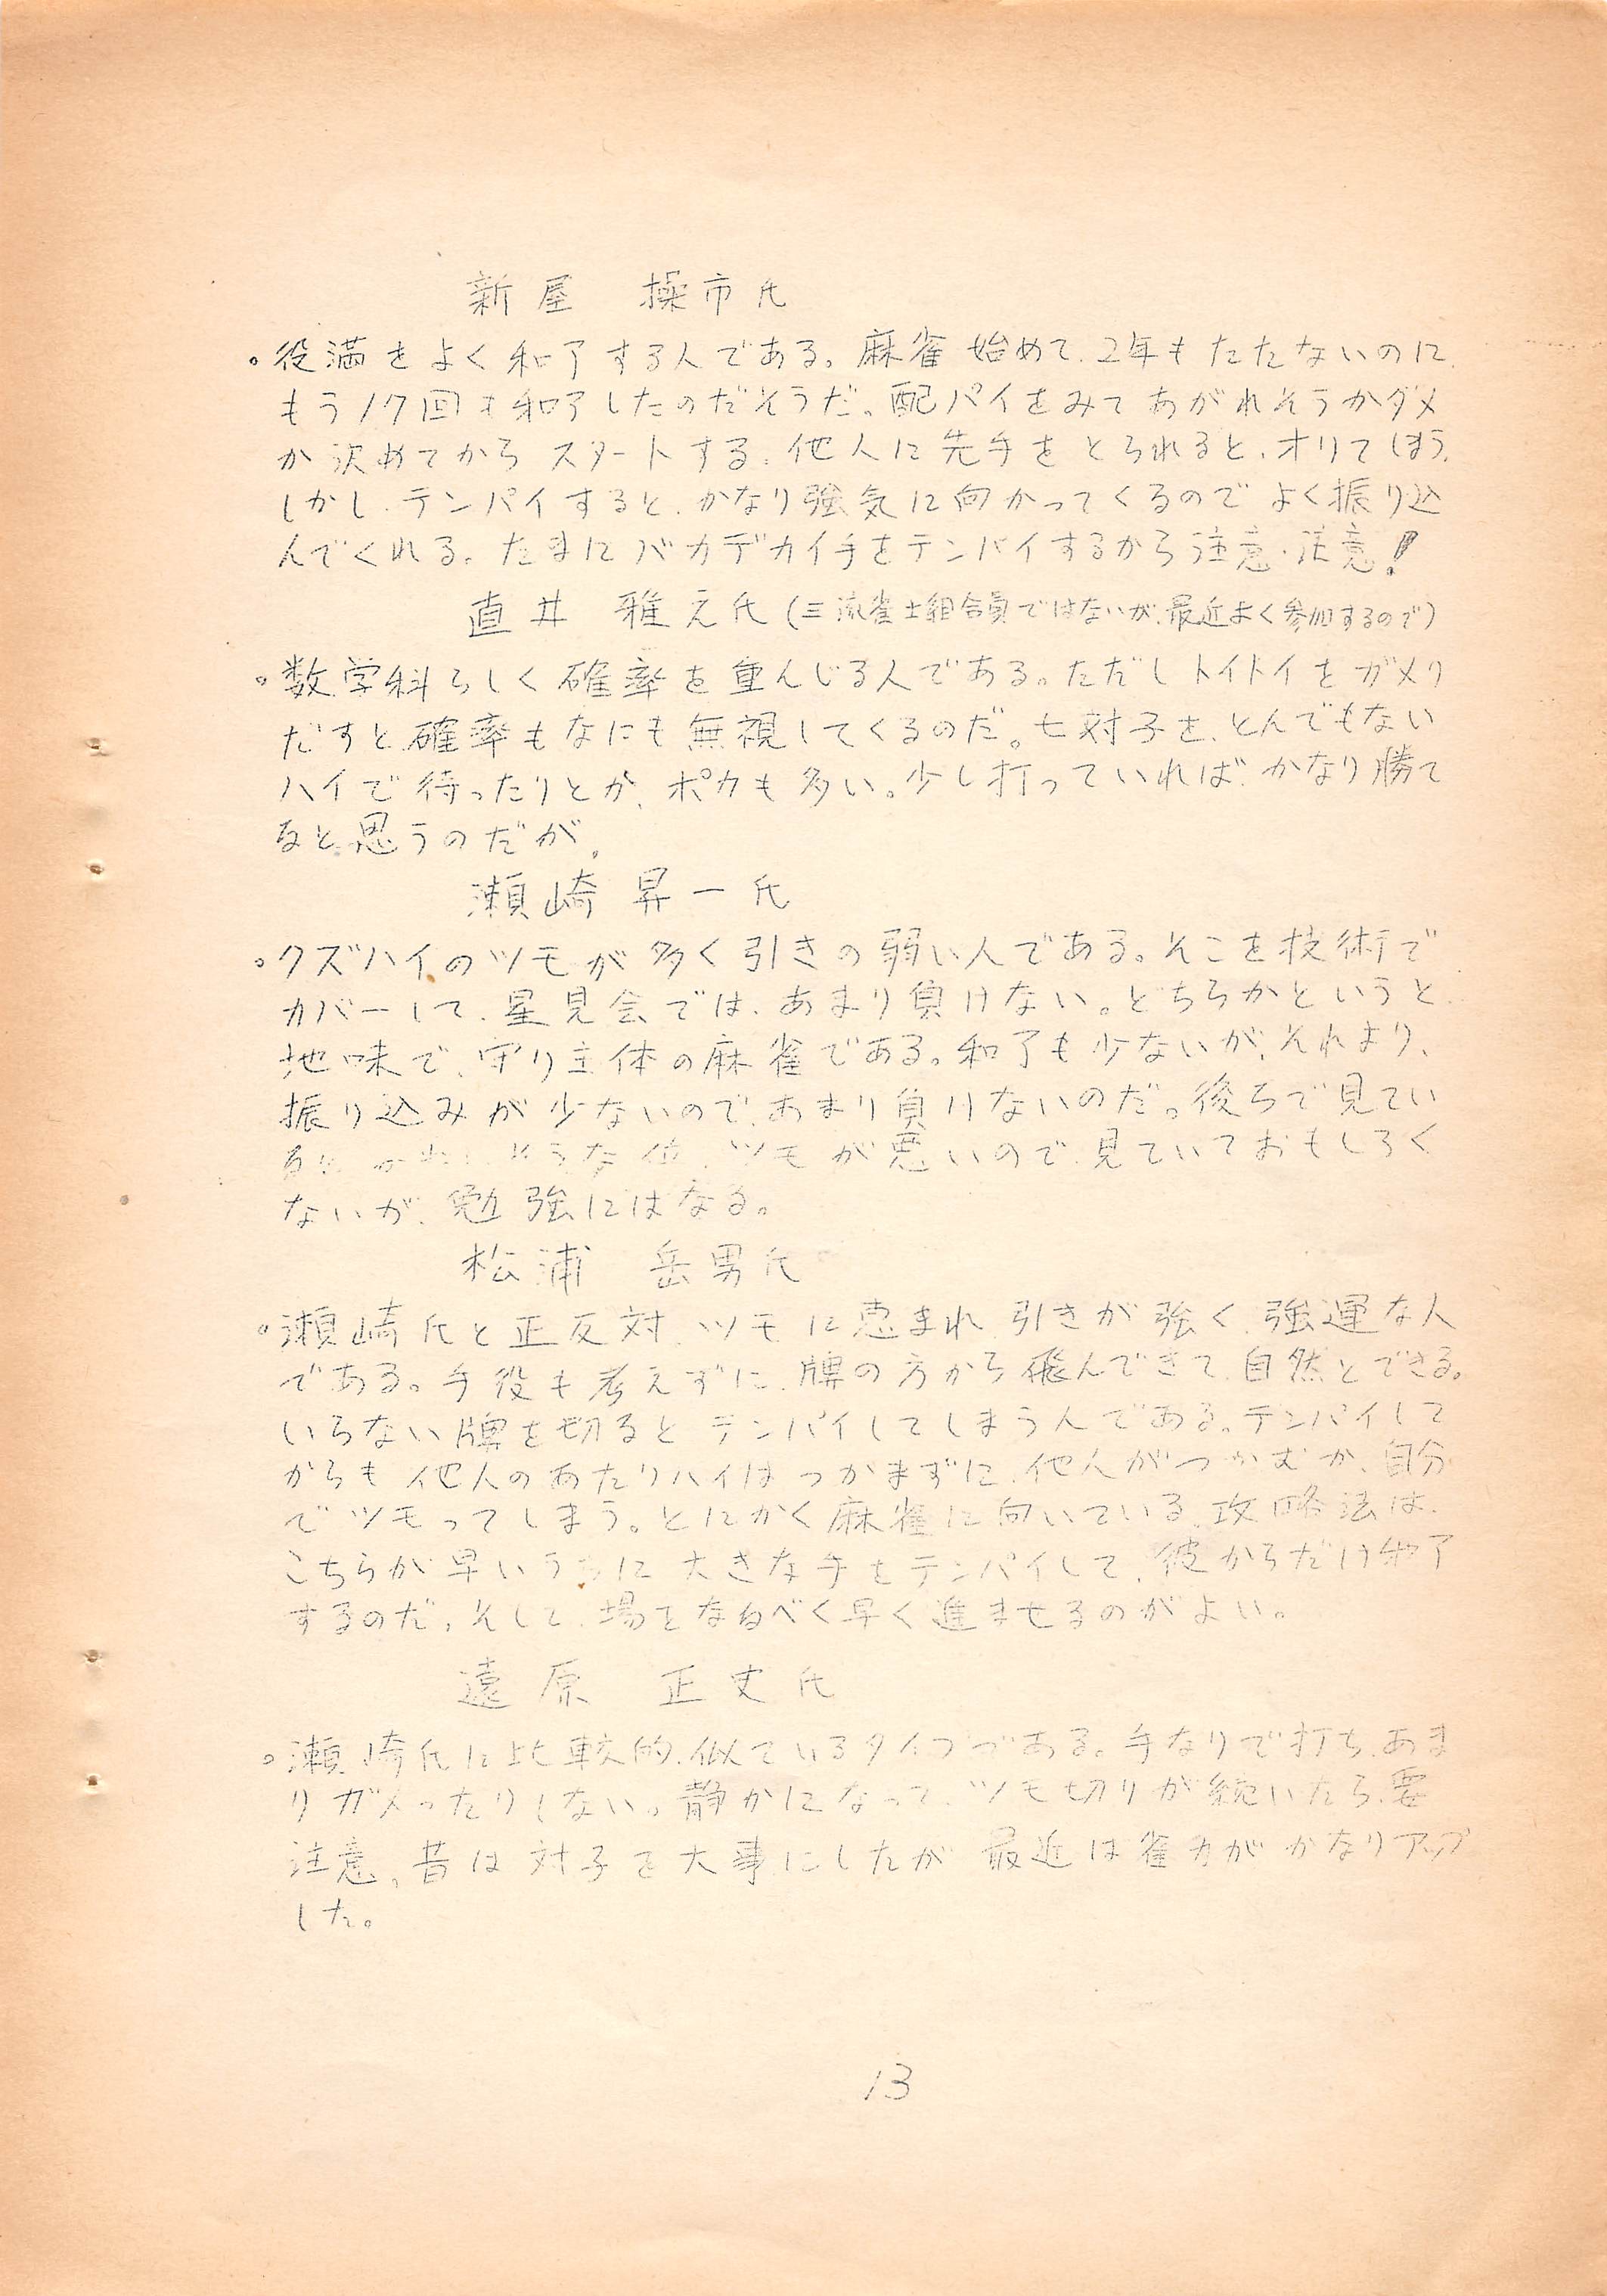 新屋 操市氏
。役満をよく和了する人である。麻雀始めて、2年もたたないのに、
もう17回も和了したのだそうだ。配パイをみてあがれそうかダメ
か決めてからスタートする。他人に先手をとられると、オリてしまう。
しかし、テンパイすると、かなり強気に向かってくるのでよく振り込
んでくれる。たまにバカデカイ手をテンパイするから注意・注意!
直井 雅之氏(三流雀士組合員ではないが、最近よく参加するので)
。数学科らしく確率を重んじる人である。ただしトイトイをガメり
だすと、確率もなにも無視してくるのだ。七対子を、とんでもない
ハイで待ったりとか、ポカも多い。少し打っていれば、かなり勝て
ると思うのだが。
瀬崎昇一氏
。クズハイのツモが多く引きの弱い人である。そこを技術で
カバーして、星見会では、あまり負けない。どちらかというと、
地味で、守り主体の麻雀である。和了も少ないが、それより、
振り込みが少ないので、あまり負けないのだ。後ろで見てい
ると、かわいそうな位、ツモが悪いので、見ていておもしろく
ないが、勉強にはなる。
松浦 岳男氏
。瀬崎氏と正反対、ツモに恵まれ、引きが強く、強運な人
である。手役も考えずに、牌の方から飛んできて、自然とできる。
いらない牌を切るとテンパイしてしまう人である。テンパイして
からも他人のあたりハイはつかまずに、他人がつかむか、自分
でツモってしまう。とにかく麻雀に向いている。攻略法は、
こちらが早いうちに大きな手をテンパイして、彼からだけ和了
するのだ。そして、場をなるべく早く進ませるのがよい。
遠原 正丈氏
。瀬崎氏に比較的、似ているタイプである。手なりで打ち、あま
りガメったりしない。静かになって、ツモ切りが続いたら、要
注意。昔は対子を大事にしたが最近は雀力がかなりアップ
した。
13